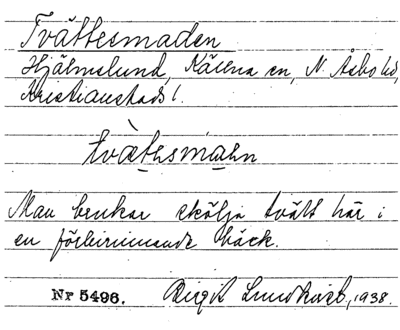 Tvättesmaden
Hjälmslund, Källna en, N. Åsbo hd,
Kristianstads l.
tvæ̀tǝsmaḥn
Man brukar skölja tvätt här i
en förbirinnande bäck.
Nr 5496. Birgit Lundkvist, 1938.